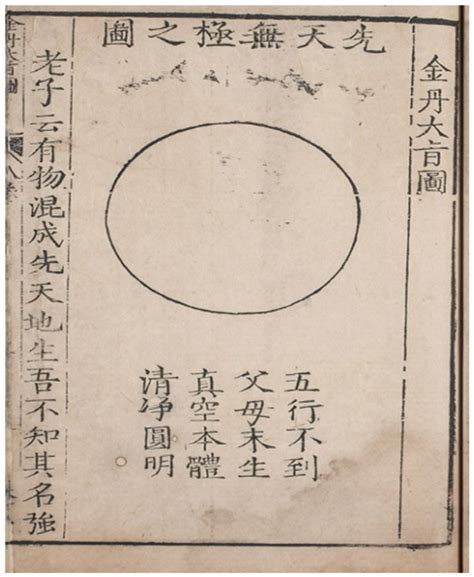 金丹大旨圖
先天無極之圖
五行不到
父母未生
真空本體
清净圓明
老子云有物混成先天地生吾不知其名強
金丹大旨圖